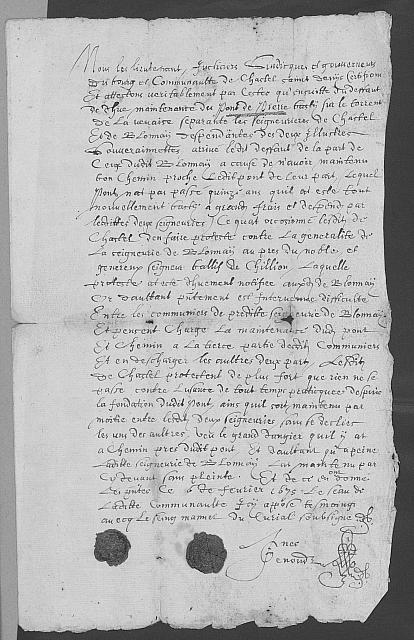 Nous les lieutenant, Justiciers Sindicques et gouverneurs
du bourg et Communaulté de Chastel Saint denys Certiffions
Et attestons veritablement par Cestes qu'ensuitte du deffaut
de deue maintenance du Pont de Pierre basty sur le torrent
De la veuaise separante les seigneuriers de Chastel
Et de Blonay despendantes des deux Illustres
Souverainnettes arrivé ledit deffaut de la part de
Ceux dudit Blonay a cause de n'avoir maintenu
bon Chemin proche ledit pont de leur part, lequel
Pont nat pas passé quinze ans quil at esté tout
nouvellement basty a grands frais et despend par
lesdittes deux seigneuries Ce quat occasionné lesdits de
Chastel d'en faire proteste contre La generalite de
La seigneurie de Blonay au pres du noble et
genereux seigneur ballif de Chillion Laquelle
proteste at esté dhuement notifiee auxdits de Blonay
Or d'aultant que est Intervenue difficulté
Entre les communiers de predicte seigneurie de Blonay
Et pensent Charge La maintenance dudit pont
Et Chemin a La tierce partie desdits Communiers
Et en descharger les aultres deux part, Lesdits
de Chastel protestent de plus fort que rien ne se
passe contre Lusance de tout temps prattiquee despuis
la fondation dudit Pont, ains quil soit maintenu par
moitie entre lesdits deux seigneuries sans se
les uns des aultres, veu le grand dangier quil y at
a Chemin pres dudit pont Et d'aultant qu'a peine
Laditte seigneurie de Blonay Lat maintenu par
Cy devant sans pleinte. Et de ce en ont donné
Les pntes Ce 6e de fevrier 1675 Le seau de
Laditte Communaulté Icy apposé tesmoings
avecq Le seing manuel du Curial soubsigné
Genoud